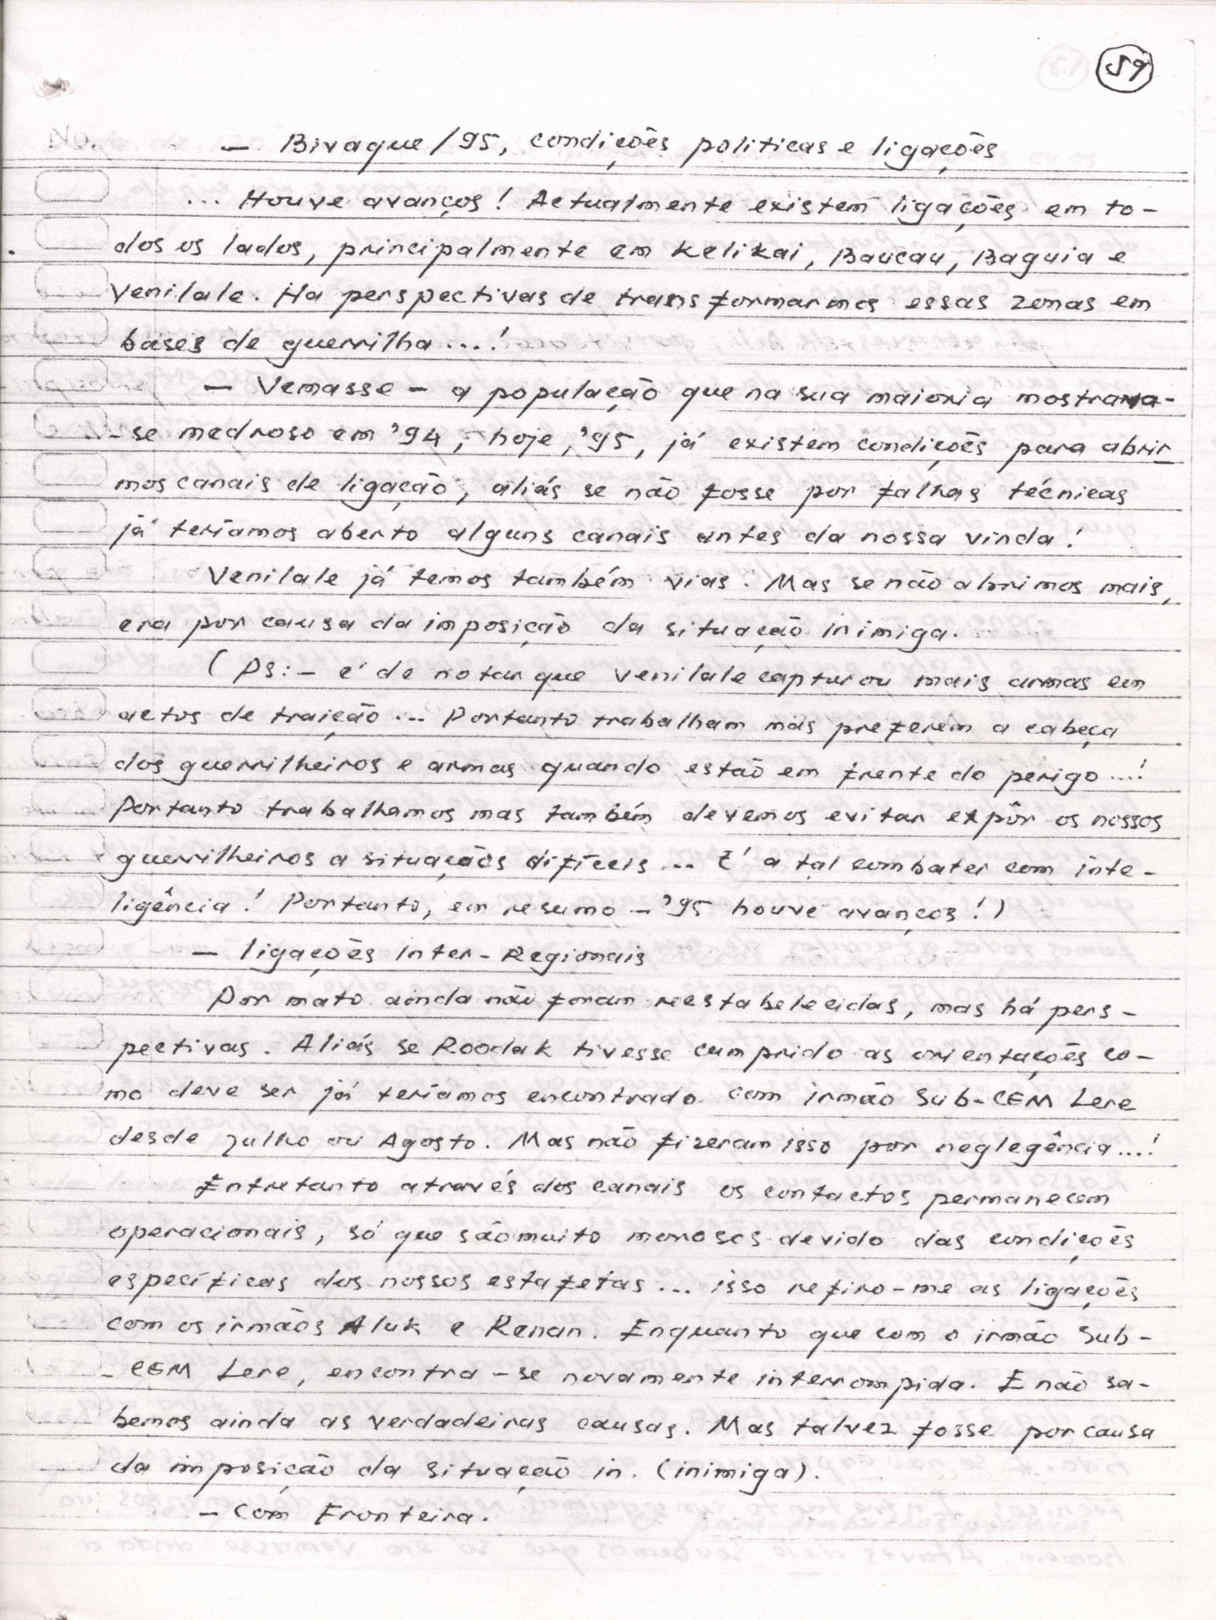 59
- Bivaque/95, condições politicas e ligações
... Houve avanços! Actualmente existem ligações em to-
dos os lados, principalmente em Kelikai, Baucau, Baguia e
Venilale. Ha perspectivas de transformarmos essas zonas em
bases de guerrilha...!
- Vemasse - a população que na sua maioria mostrava-
-se medroso em '94, hoje, '95, já existem condições para abrir-
mos canais de ligação, aliás se não fosse por falhas técnicas
já teríamos aberto alguns canais antes da nossa vinda!
Venilale já temos também vias. Mas se não abrimos mais,
era por causa da imposição da situação inimiga.
(Ps:- é de notar que Venilale capturou mais armas em
actos de traição... Portanto trabalham mas preferem a cabeça
dos guerrilheiros e armas quando estão em frente do perigo...!
Portanto trabalhemos mas também devemos evitar expôr os nossos
guerrilheiros a situaçãos difíceis... E' a tal combater com inte-
ligência! Portanto, em resumo - '95 houve avanços!)
- ligações Inter-Regionais
Por mato ainda não foram reestabelecidas, mas há pers-
pectivas. Aliás se Roodak tivesse cumprido as orientações co-
mo deve ser já teríamos encontrado com irmão Sub-CEM Lere
desde julho ou Agosto. Mas não fizeram isso por neglegência...!
Entretanto através dos canais os contactos permanecem
operacionais, só que são muito morosos devido das condições
específicas dos nossos estafetas... isso refiro-me as ligações
com os irmãos Aluk e Renan. Enquanto que com o irmão Sub-
-CEM Lere, encontra-se novamente interrompida. E não sa-
bemos ainda as verdadeiras causas. Mas talvez fosse por causa
da imposição da situação in. (inimiga).
- Com Fronteira.